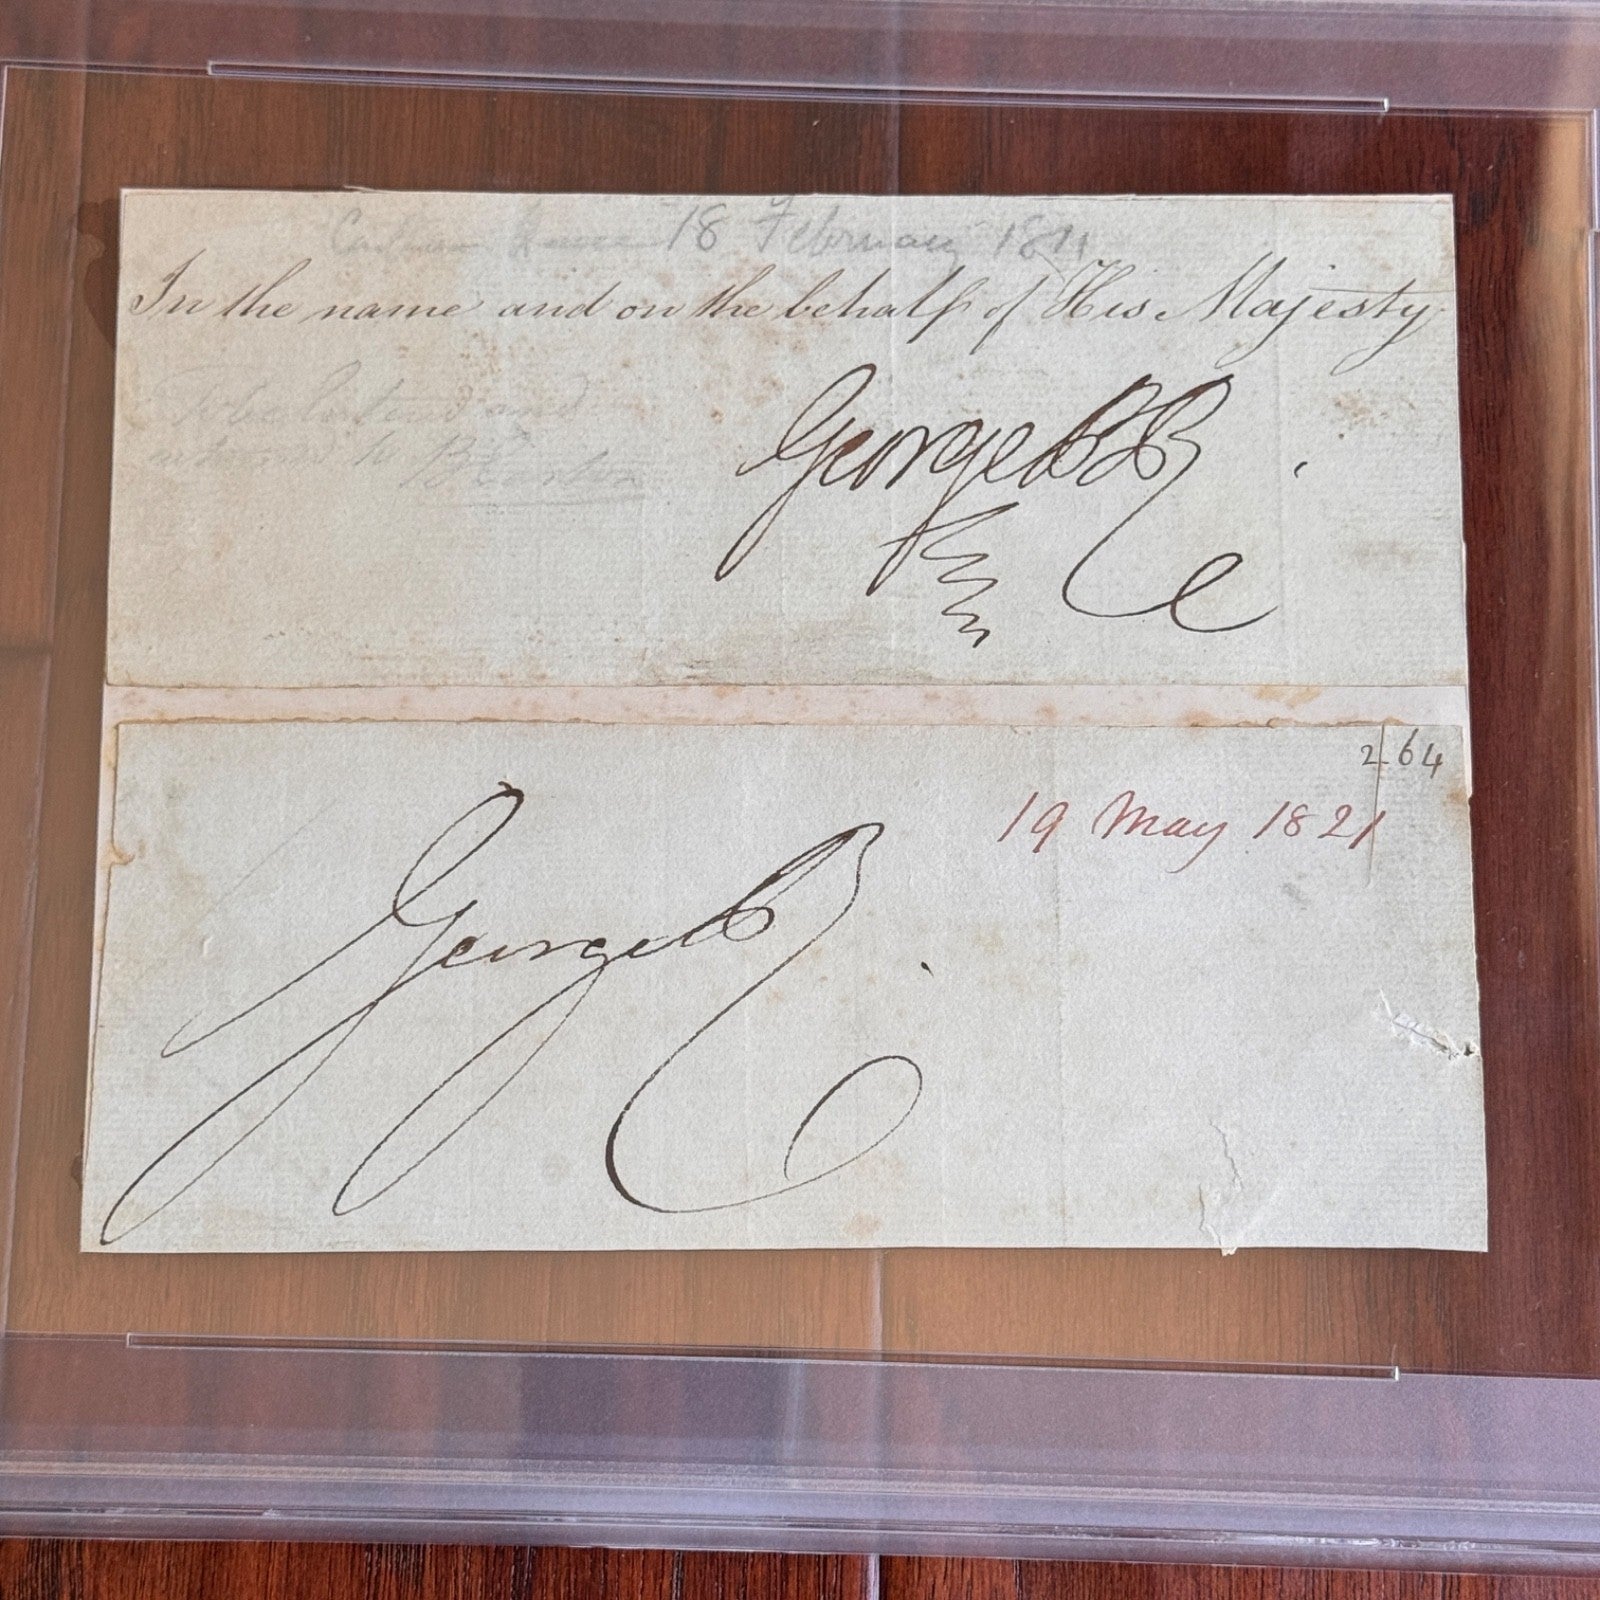 Carlton House 18 February 1811
In the name and on the behalf of His Majesty
George P R
to
264
19 May 1821
George R